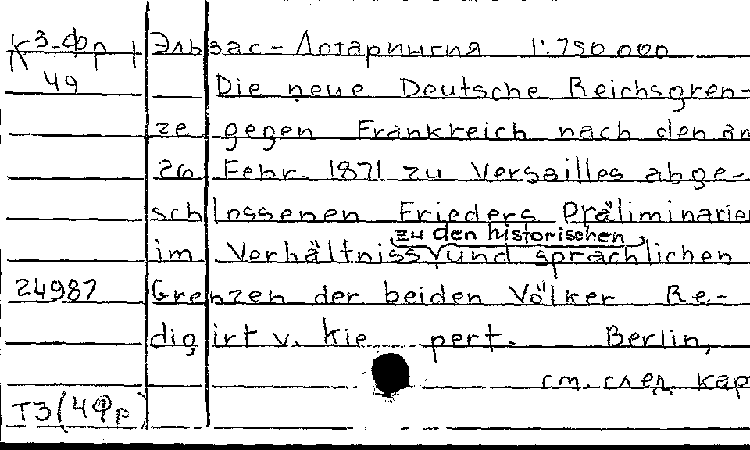 К3-Фр Эльзас-Лотарингия 1:750 000
49 Die neue Deutsche Reichsgren-
ze gegen Frankreich nach den am
26 Febr. 1871 zu Versailles abge-
schlossenen Frieders Präliminarien
zu den historischen
im Verhältniss und sprachlichen
24987 Grenzen der beiden Völker Re-
digirt v. Kie pert. Berlin,
см. след. кар
Т3(4Фр)